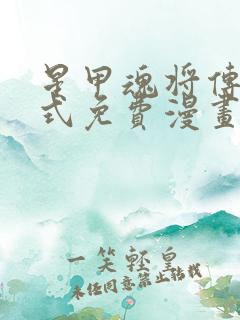 星甲魂将傳
式免費漫畫
一笑輕皇
未任同意禁止轉載